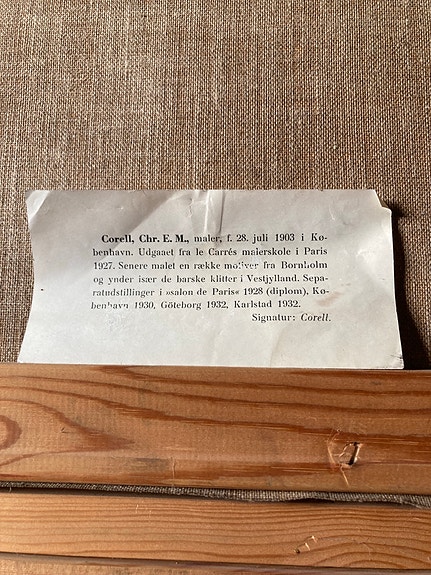 Corell, Chr. E. M., maler, f. 28. juli 1903 i Kø-
benhavn. Udgaaet fra le Carrés malerskole i Paris
1927. Senere malet en række motiver fra Bornholm
og ynder især de barske klitter i Vestjylland. Sepa-
ratudstillinger i »salon de Paris« 1928 (diplom), Kø-
benhavn 1930, Göteborg 1932, Karlstad 1932.
Signatur: Corell.